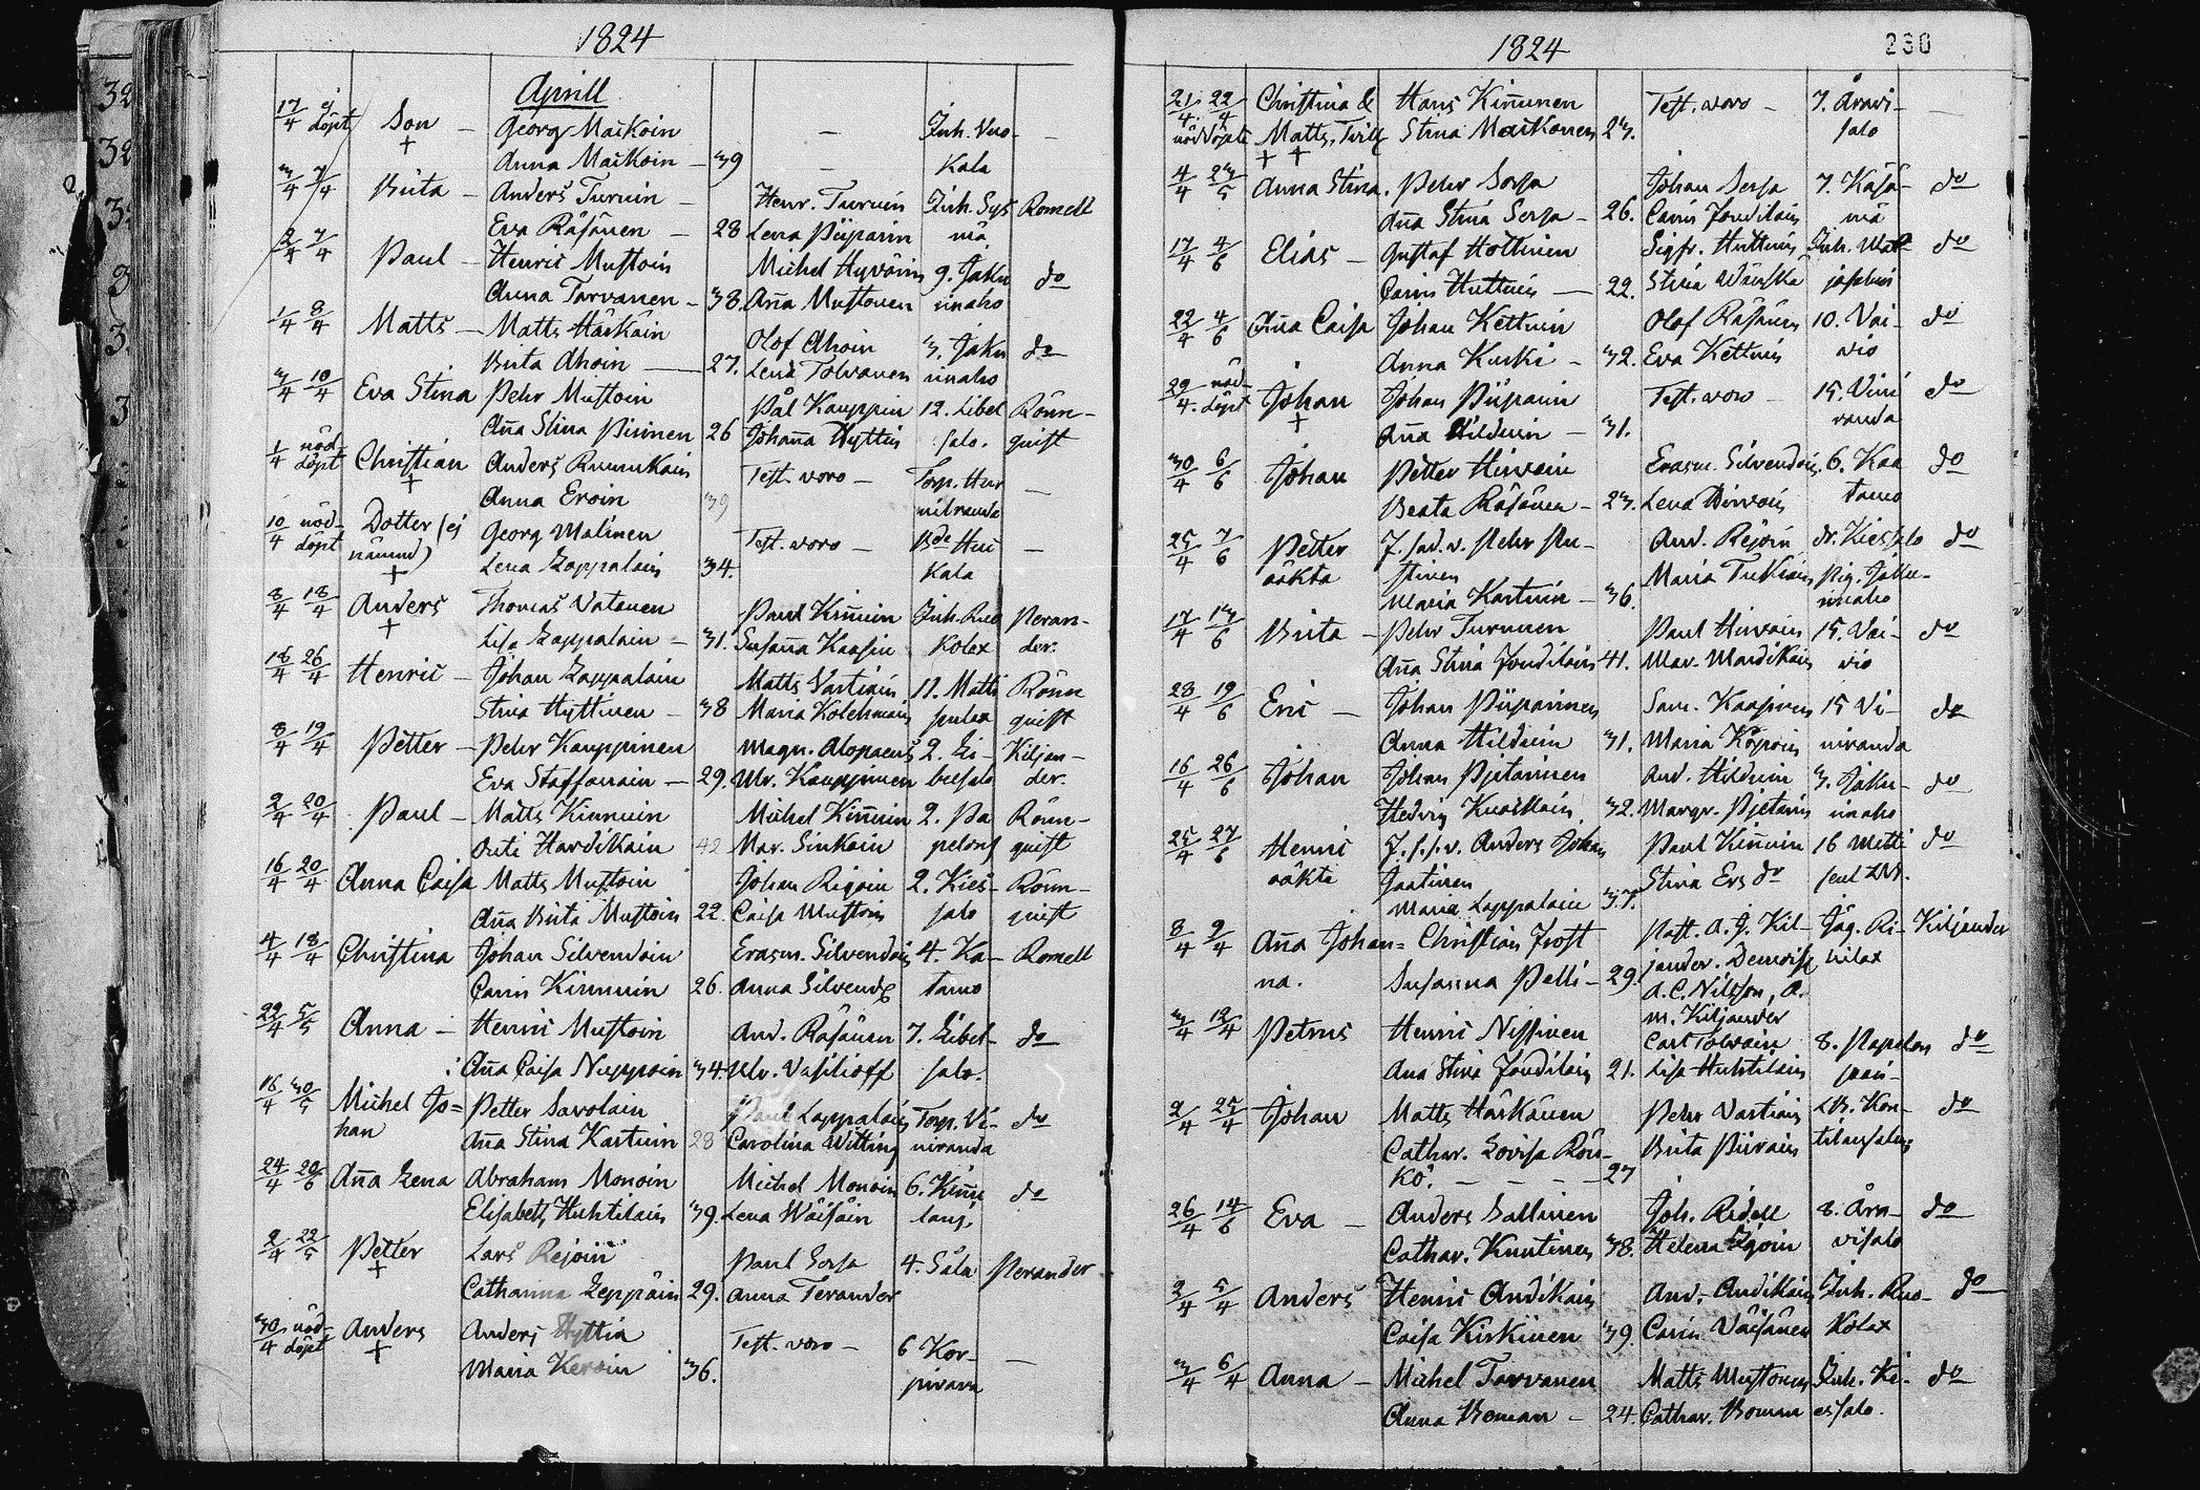 1824
Aprill
17/4 ej döpt Son — Georg Maikoin — Inh. Vuo- —
+ Anna Maikoin — 39 — kala
3/4 7/4 Brita — Anders Turuin — Henr. Turuin Inh. Sys Romell
Eva Räsänen — 28 Lena Piiparin mä
2/4 7/4 Paul — Henric Mustoin Michel Hyvärin 9. Jaku do
Anna Tarvanen — 38. Aña Mustonen imaho
1/4 8/4 Matts — Matts Härkäin Olof Ahoin 3. Jaku do
Brita Ahoin — 27. Lena Tolvanen imaho
3/4 10/4 Eva Stina Pehr Mustoin Pål Kauppin 12. Libel Rönn-
Aña Stina Pirinen 26 Johaña Hyttin salo. quist
1/4 nöd-döpt Christian Anders Ruunukain Test. voro — Torp. Hur —
+ Anna Eroin 39 nitranda
10/4 nöd-döpt Dotter (ej Georg Malinen Test. voro — Bde Hui —
nämnd) Lena Lappalain 34. kala
+
8/4 18/4 Anders Thomas Vatanen Paul Kiñuin Inh. Ruo Peran-
+ Lisa Lappalain — 31. Susaña Kaasin kolax der.
18/4 26/4 Henric — Johan Lappalain Matts Vartiain 11. Matti Rönn
Stina Hyttinen — 38 Maria Kolehmain pulax quist
8/4 19/4 Petter — Pehr Kauppinen Magn. Alopaeus 2. Li- Kiljan-
Eva Staffanain — 29. Ulr. Kauppinen belsalo der.
2/4 20/4 Paul — Matts Kinnuin Michel Kiñuin 2. Pa Rönn-
Outi Hardikain 42 Mar. Sinkoin pelons quist
16/4 20/4 Anna Caisa Matts Mustoin Johan Rigoin 2. Kies- Rönn-
Aña Brita Mustoin 22. Caisa Mustoin salo quist
4/4 18/4 Christina Johan Silvendoin Erasm. Silvendoin 4. Ka- Romell
Carin Kinnuin 26. Anna Silvend tamo
22/4 5/5 Anna — Henric Mustoin And. Räsänen 7. Libel- do
Aña Caisa Nuppoin 34. Ulr. Vasilioff salo.
16/4 30/5 Michel Jo= Petter Savolain Paul Lappalain Torp. Vi- do
han Aña Stina Kartuin 28 Carolina Witting niranda
24/4 20/6 Aña Lena Abraham Monoin Michel Monoin 6. Kiñu do
Elisabeth Huhtilain 39. Lena Wäisäin lans.
2/4 22/5 Petter Lars Rejoin Paul Sorsa 4. Sala Perander
+ Catharina Leppäin 29. Anna Terander
30/4 nöd-döpt Anders Anders Hyttin Test. voro — 6 Kor- —
+ Maria Keroin 36. pivara
1824 230
21/4 22/4 Christina & Hans Kiñunen Test. voro — 7. Arvi- —
nöddöpte Matts, Twill Stina Maikonen 23. salo
+ +
4/4 23/5 Anna Stina. Pehr Sorsa Johan Sorsa 7. Käsä- do
Aña Stina Sorsa — 26. Carin Joudilain mä
17/4 4/6 Elias — Gustaf Hottinen Sigfr. Huttuin Inh. do
Carin Huttuin — 22. Stina
22/4 4/6 Aña Caisa Johan Kettuin Olof Räsänen 10. Vai- do
Anna Kurki — 32. Eva Kettuin vio
29/4 nöd-döpt Johan Johan Piiparin Test. voro 15. Vini do
+ Aña Hilduin — 31. randa
30/4 6/6 Johan Petter Hirvoin Erasm. Silvendoin 6. Kaa do
Beata Räsänen — 23. Lena Hirvoin tamo
25/4 7/6 Petter J. sad. v. Pehr Pu- And. Rejoin dr. Kiessalo do
oäkta stinen Maria Tukiain Pig. Jaku-
Maria Kartuin — 36. imaho
17/4 13/6 Brita — Pehr Turunen Paul Hirvoin 15. Vai- do
Aña Stina Joudilain 41. Mar. Mardikain vio
28/4 19/6 Eric — Johan Piiparinen Sam. Kaasinen 15 Vi- do
Anna Hilduin 31. Maria Köpoin niranda
16/4 26/6 Johan Johan Pjetarinen And. Hilduin 3. Jaku- do
Hedvig Kuosmain 32. Margr. Pjetarin imaho
25/4 27/6 Henric J. s. s. v. Anders Johan Paul Kiñuin 16 Matti do
oäkta Jaatinen Stina Ers do
Maria Lappalain 37.
8/4 9/4 Aña Johan= Christian Frost Past. A. J. Kil- Jäg. Ri- Kiljander
na. Susanna Pelli — 29. jander. Demoise hilax
A. C. Nilsson, A.
M. Kiljander
3/4 12/4 Petrus Henric Nissinen Carl Tolvain 8. Papelon do
Aña Stina Joudilain 21. Lisa Huhtilain saari-
2/4 25/4 Johan Matts Härkönen Pehr Vartiain LB. Kon- do
Cathar. Lovisa Rön- Brita Piirain tilansalmi
kö. — — — 27
26/4 14/6 Eva — Anders Sallinen Joh. Ridell 8. Arvi- do
Cathar. Knutinen 38. Helena visalo
2/4 5/4 Anders Henric Andikain And. Andikain Inh. Ruo- do
Caisa Kiskinen 39. Carin Väisänen kolax
3/4 6/4 Anna — Michel Tarvanen Matts Mustonen Inh. Ki- do
Anna Boman — 24. Cathar. Boman essalo.